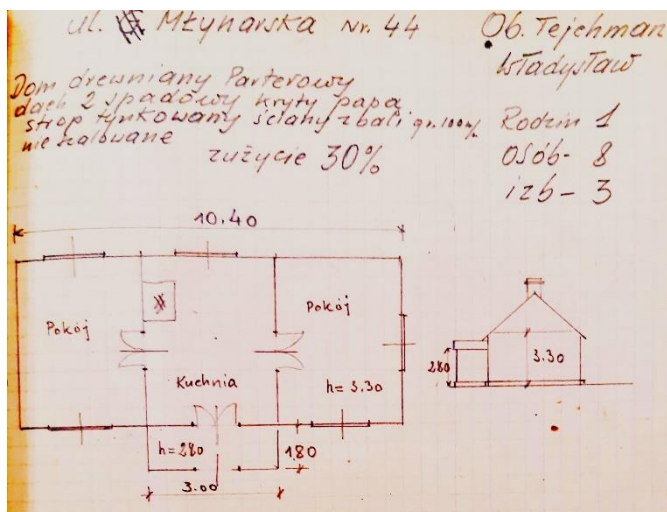 ul. Młynarska Nr. 44
Ob. Tejchman
Władysław
Dom drewniany Parterowy
dach 2 spadowy kryty papa
strop tynkowany ściany z bali gr. 100 %
nie szalowane
zużycie 30%
Rodzin 1
osób - 8
izb - 3
10.40
Pokój
Pokój
Kuchnia
h= 3.30
h=280
1.80
3.00
280
3.30